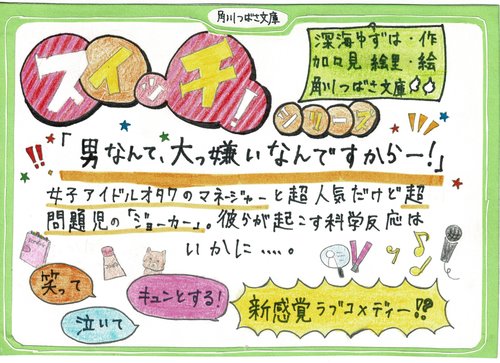 角川つばさ文庫
スイッチ!
シリーズ
深海ゆずは・作
加々見 絵里・絵
角川つばさ文庫
「男なんて、大っ嫌いなんですからー!」
女子アイドルオタクのマネージャーと超人気だけど超
問題児の「ジョーカー」。彼らが起こす科学反応は
いかに....。
笑って
泣いて
キュンとする!
新感覚ラブコメディー!?